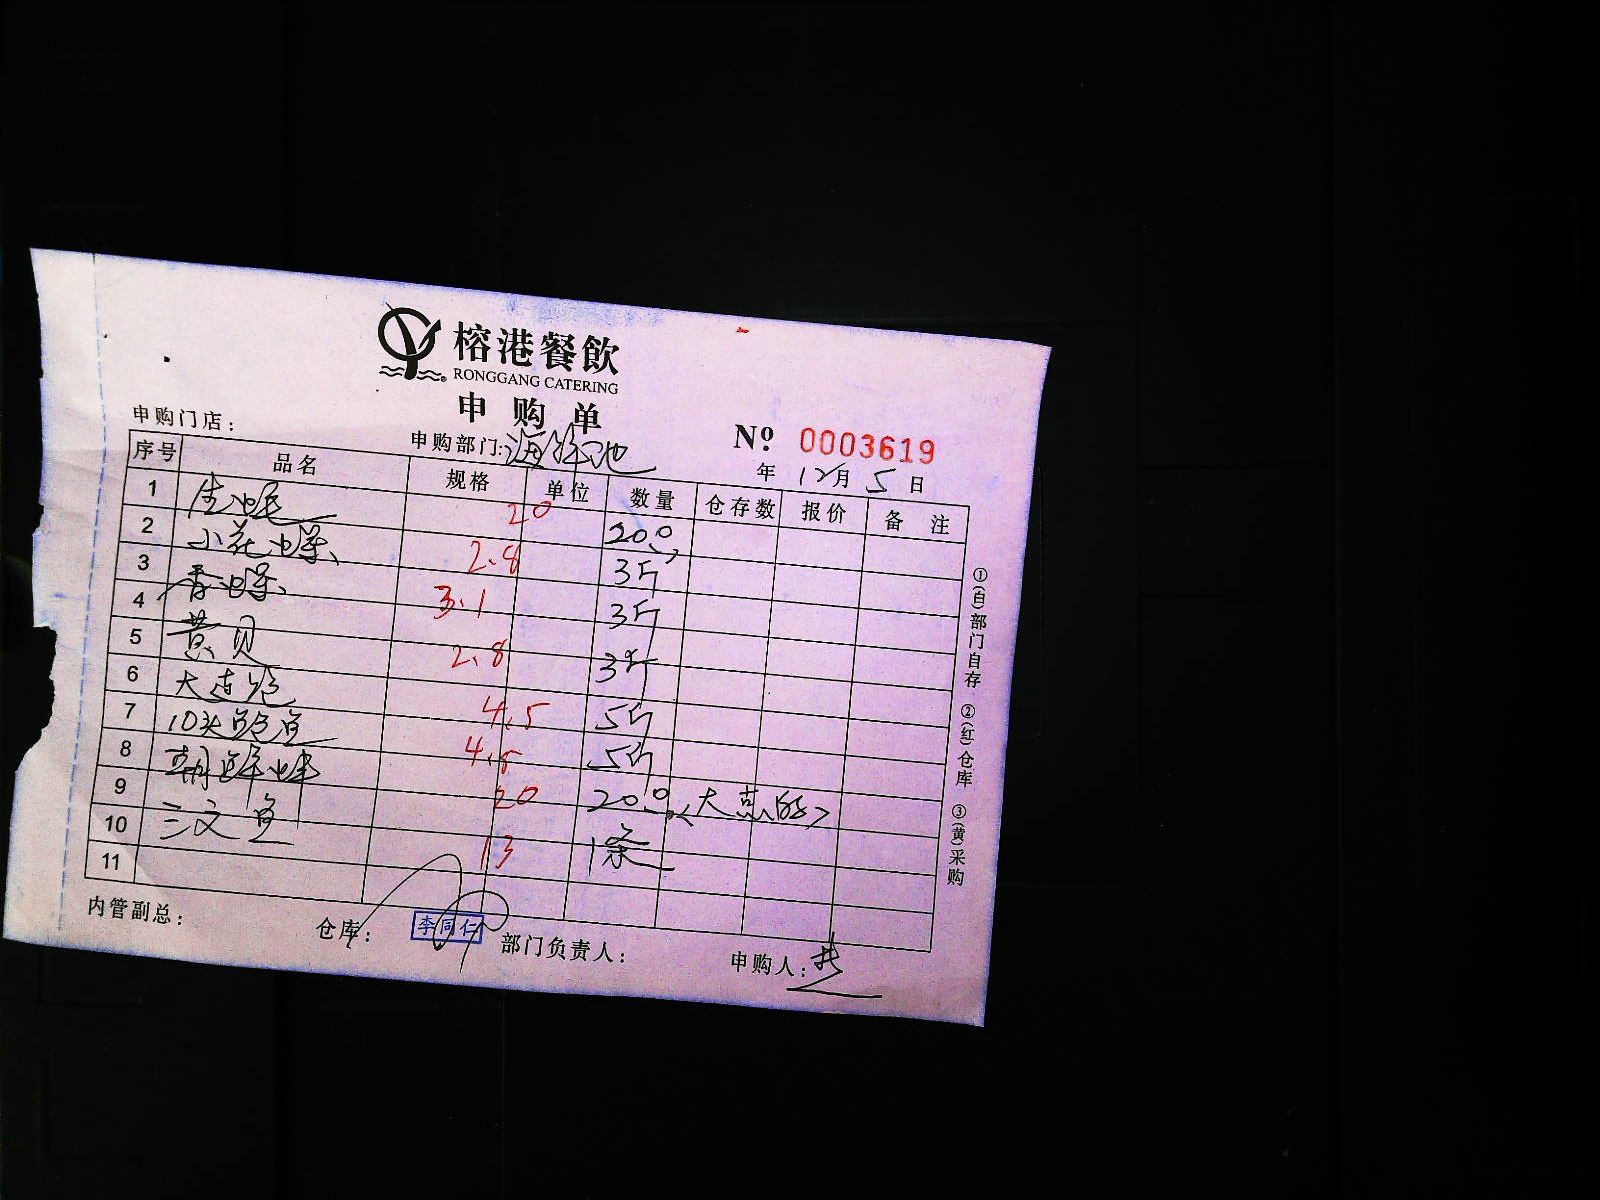 榕港餐飲
RONGGANG CATERING
申购单
申购门店：
申购部门：海鲜池
№ 0003619
年 12月 5日
序号 品名 规格 单位 数量 仓存数 报价 备注
1 生蚝 20 20.0
2 小花螺 2.8 3斤
3 香螺 3.1 3斤
4 黄贝 2.8 3斤
5 大连鲍 4.5 5斤
6 10头鲍鱼 4.5 5斤
7 朝鲜蚌 20 20.0 <大点的>
8 三文鱼 13 1条
9
10
11
①(白)部门自存 ②(红)仓库 ③(黄)采购
内管副总： 仓库： 李同仁 部门负责人： 申购人：